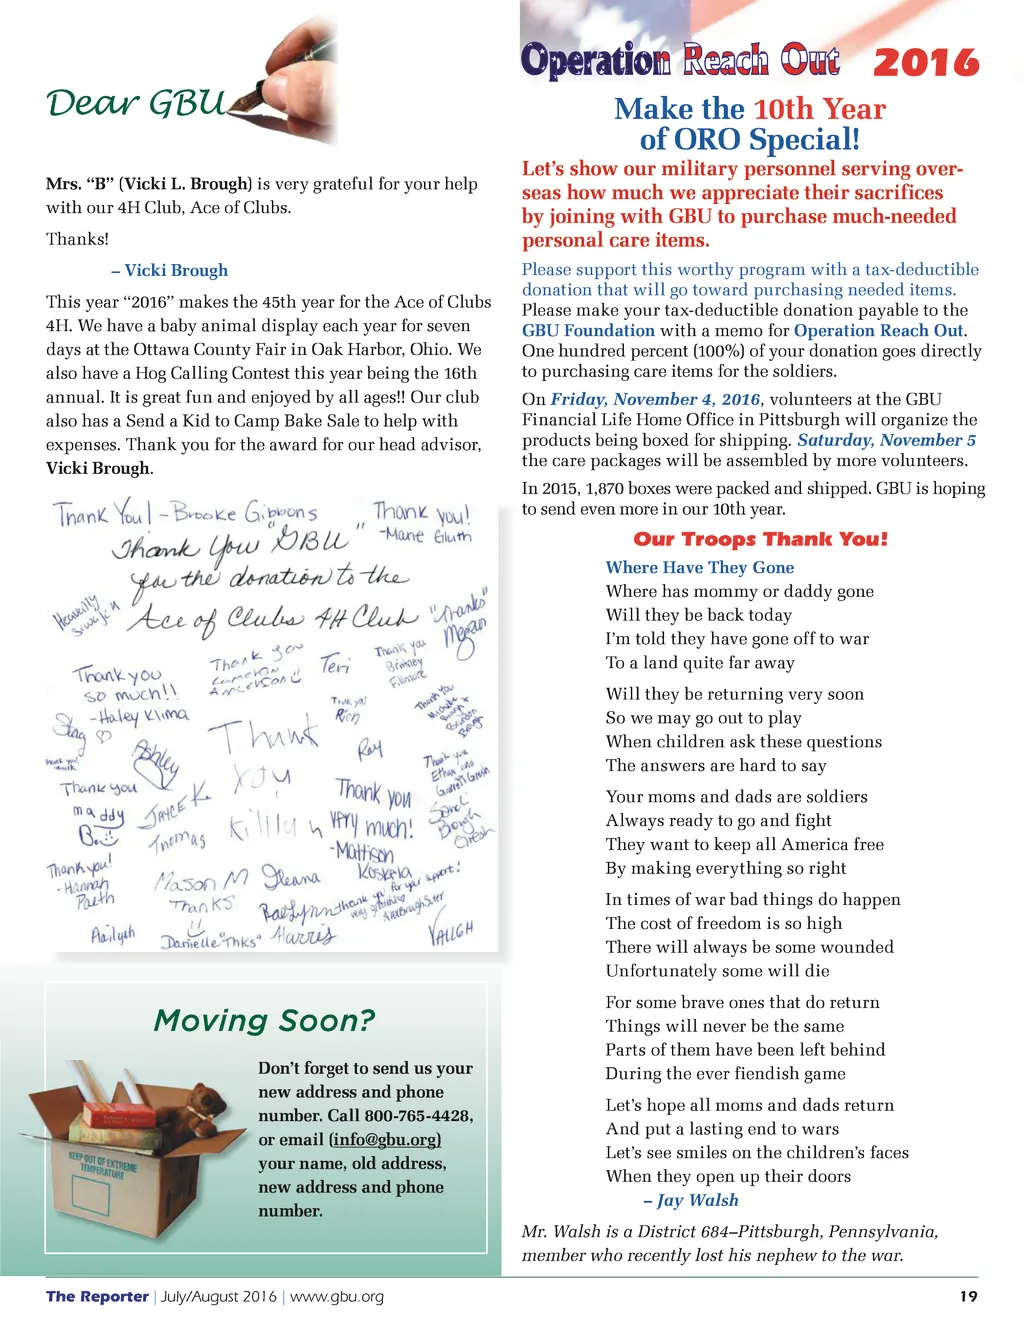 Dear GBU
Mrs. “B” (Vicki L. Brough) is very grateful for your help
with our 4H Club, Ace of Clubs.
Thanks!
– Vicki Brough
This year “2016” makes the 45th year for the Ace of Clubs
4H. We have a baby animal display each year for seven
days at the Ottawa County Fair in Oak Harbor, Ohio. We
also have a Hog Calling Contest this year being the 16th
annual. It is great fun and enjoyed by all ages!! Our club
also has a Send a Kid to Camp Bake Sale to help with
expenses. Thank you for the award for our head advisor,
Vicki Brough.
Thank You! - Brooke Gibbons
Thank you!
-Marie Gluth
Thank You "GBU"
for the donation to the
Ace of Clubs 4H Club
"Thanks"
Megan
Heavenly
Thank you
so much!!
-Haley Klima
Thank you
Cameron
Anderson
Teri
Thank you
Britney
Fillmore
Thank you!
Rich
Thank you
Ashley
Thank
you
Ray
Thank you
Ethan and
Garrett Gresh
Thank you
maddy
B.
JAYCE K.
Thomas
Thank you
very much!
-Mattison
Koskela
Thank you!
-Hannah
Paeth
Mason M
Thanks
Ileana
Raelynn
Harris
Thank you for your support!
Aailyah
Danielle "Thks"
VAUGH
Moving Soon?
Don’t forget to send us your
new address and phone
number. Call 800-765-4428,
or email (info@gbu.org)
your name, old address,
new address and phone
number.
KEEP OUT OF EXTREME
TEMPERATURE
Operation Reach Out 2016
Make the 10th Year
of ORO Special!
Let’s show our military personnel serving over-
seas how much we appreciate their sacrifices
by joining with GBU to purchase much-needed
personal care items.
Please support this worthy program with a tax-deductible
donation that will go toward purchasing needed items.
Please make your tax-deductible donation payable to the
GBU Foundation with a memo for Operation Reach Out.
One hundred percent (100%) of your donation goes directly
to purchasing care items for the soldiers.
On Friday, November 4, 2016, volunteers at the GBU
Financial Life Home Office in Pittsburgh will organize the
products being boxed for shipping. Saturday, November 5
the care packages will be assembled by more volunteers.
In 2015, 1,870 boxes were packed and shipped. GBU is hoping
to send even more in our 10th year.
Our Troops Thank You!
Where Have They Gone
Where has mommy or daddy gone
Will they be back today
I’m told they have gone off to war
To a land quite far away
Will they be returning very soon
So we may go out to play
When children ask these questions
The answers are hard to say
Your moms and dads are soldiers
Always ready to go and fight
They want to keep all America free
By making everything so right
In times of war bad things do happen
The cost of freedom is so high
There will always be some wounded
Unfortunately some will die
For some brave ones that do return
Things will never be the same
Parts of them have been left behind
During the ever fiendish game
Let’s hope all moms and dads return
And put a lasting end to wars
Let’s see smiles on the children’s faces
When they open up their doors
– Jay Walsh
Mr. Walsh is a District 684–Pittsburgh, Pennsylvania,
member who recently lost his nephew to the war.
The Reporter | July/August 2016 | www.gbu.org
19